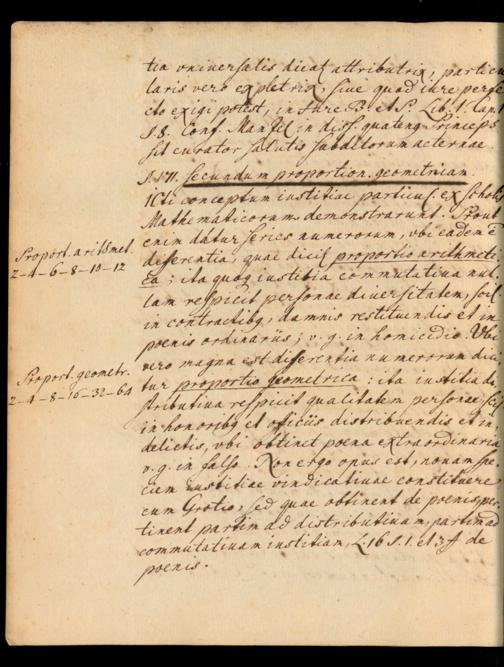 tia vniversalis dicat attributrix, particu
laris vero expletrix, sive quod iure perfe
cto exigi potest, in Jure B. et P. Lib. 1.
§. 8. Conf. in diss. quatenq Princeps
sit curator salutis subditorum aeternae
§. VII. secundum proportion. geometricam.
ICti conceptum iustitiae particul. ex scholis
Mathematicorum demonstrarunt. Prout
enim datur series numerorum, vbi eadem
Proport. arithmet.
differentia, quae dicit proportio arithmeti
2-4-6-8-10-12
ca; ita quoq iustitia commutativa nul
lam respicit personae diversitatem, scil.
in contractibq, damnis restituendis et in
poenis ordinariis; v. g. in homicidio. Vbi
vero magna est differentia numerorum dici
Proport. geometr.
tur proportio geometrica: ita iustitia di
2-4-8-16-32-64
stributiva respicit qualitatem personae scil.
in honoribq et officiis distribuendis et in
delictis, vbi obtinet poena extraordinaria
v. g. in falso. Non ergo opus est, novam spe
ciem iustitiae vindicativae constituere
cum Grotio, sed quae obtinent de poenis, per
tinent partim ad distributivam, partim ad
commutativam iustitiam, L. 16 §. 1. et 3 ff de
poenis.